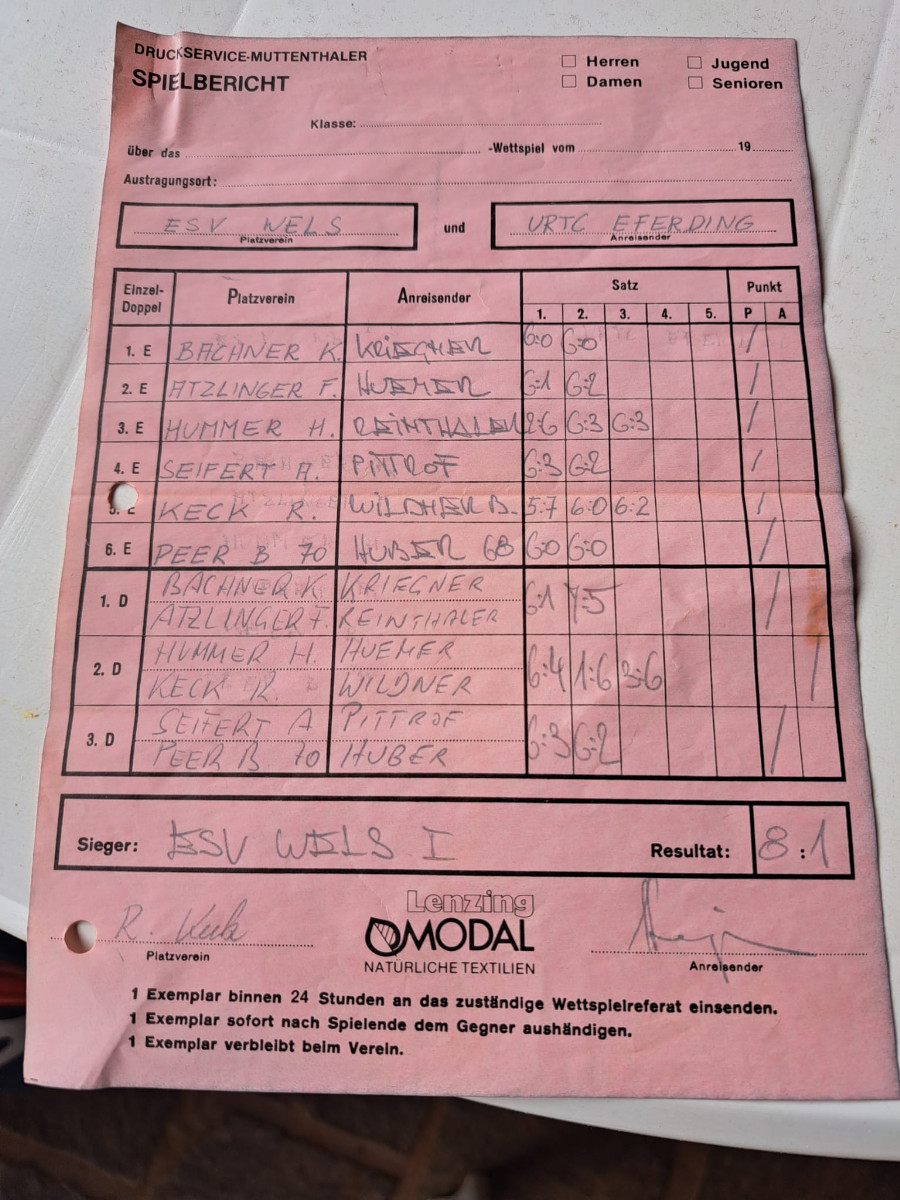 DRUCKSERVICE-MUTTENTHALER
SPIELBERICHT
Herren Jugend
Damen Senioren
Klasse:
über das -Wettspiel vom 19
Austragungsort:
ESV WELS und URTC EFERDING
Platzverein Anreisender
Einzel-Doppel Platzverein Anreisender Satz Punkt
1. 2. 3. 4. 5. P A
1. E BACHNER K. KRIEGNER 6:0 6:0 /
2. E ATZLINGER F. HUEMER 6:1 6:2 /
3. E HUMMER H. REINTHALER 2:6 6:3 6:3 /
4. E SEIFERT A. PITTROF 6:3 6:2 /
5. E KECK R. WILDNER B. 5:7 6:0 6:2 /
6. E PEER B 70 HUBER 68 6:0 6:0 /
1. D BACHNER K. KRIEGNER 6:1 7:5 /
ATZLINGER F. REINTHALER
2. D HUMMER H. HUEMER 6:4 1:6 3:6 /
KECK R. WILDNER
3. D SEIFERT A PITTROF 6:3 6:2 /
PEER B. 70 HUBER
Sieger: ESV WELS I Resultat: 8:1
Lenzing
MODAL
NATÜRLICHE TEXTILIEN
R. Keck
Platzverein Anreisender
1 Exemplar binnen 24 Stunden an das zuständige Wettspielreferat einsenden.
1 Exemplar sofort nach Spielende dem Gegner aushändigen.
1 Exemplar verbleibt beim Verein.